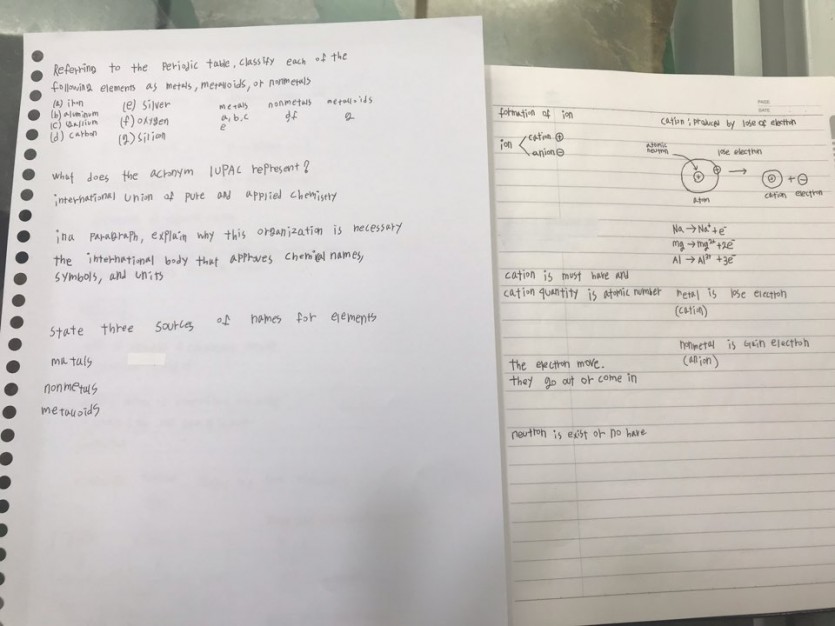 Referring to the periodic table, classify each of the
following elements as metals, metalloids, or nonmetals
(a) iron (e) silver metals nonmetals metalloids
(b) aluminum (f) oxygen a, b, c df g
(c) (g) silion e
(d) carbon
what does the acronym IUPAC represent?
international union of pure and applied chemistry
in a paragraph, explain why this organization is necessary
the international body that approves chemical names,
symbols, and units
state three sources of names for elements
matals
nonmetals
metalloids
PAGE
DATE
formation of ion
cation : produced by lose of electron
ion cation ⊕
anion ⊖
atomic neutron lose electron
atom cation electron
Na → Na⁺ + e⁻
mg → mg²⁺ + 2e⁻
Al → Al³⁺ + 3e⁻
cation is must have and
cation quantity is atomic number metal is lose electron
(cation)
nonmetal is gain electron
(anion)
the electron move.
they go out or come in
neutron is exist or no have